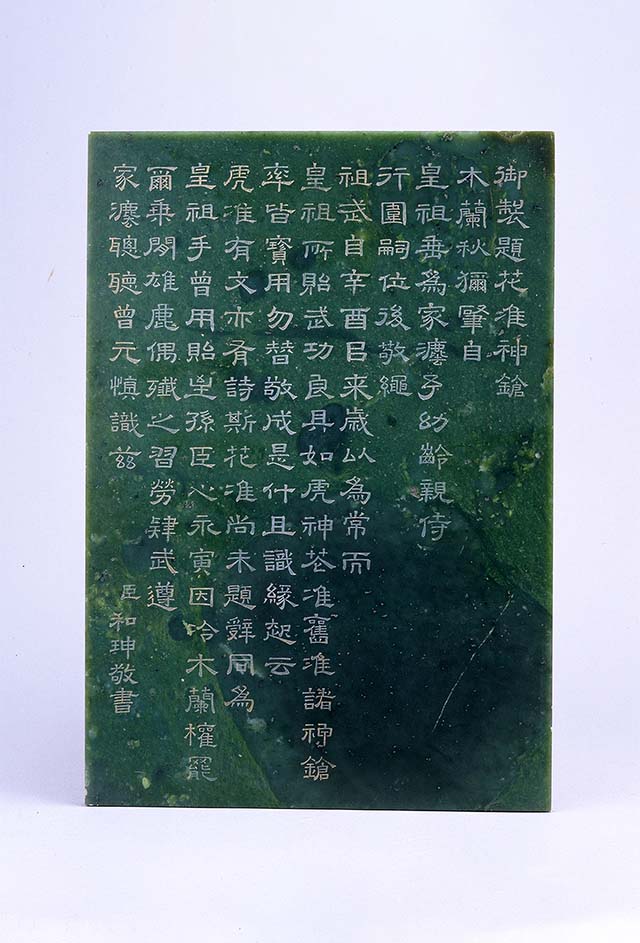 御製題花准神鎗
木蘭秋獮肇自
皇祖垂為家灋予幼齡親侍
行圍嗣位後敬繩
祖武自辛酉㠯来歲以為常而
皇祖所貽武功良具如虎神花准舊准諸神鎗
率皆寶用勿替敬成是什且識緣起云
虎准有文亦有詩斯花准尚未題辭同為
皇祖手曾用貽㞢孫臣心永寅因吟木蘭榷罷
爾乗閒雄鹿偶殲之習勞肄武遵
家灋聰聽曾元慎識茲
臣和珅敬書